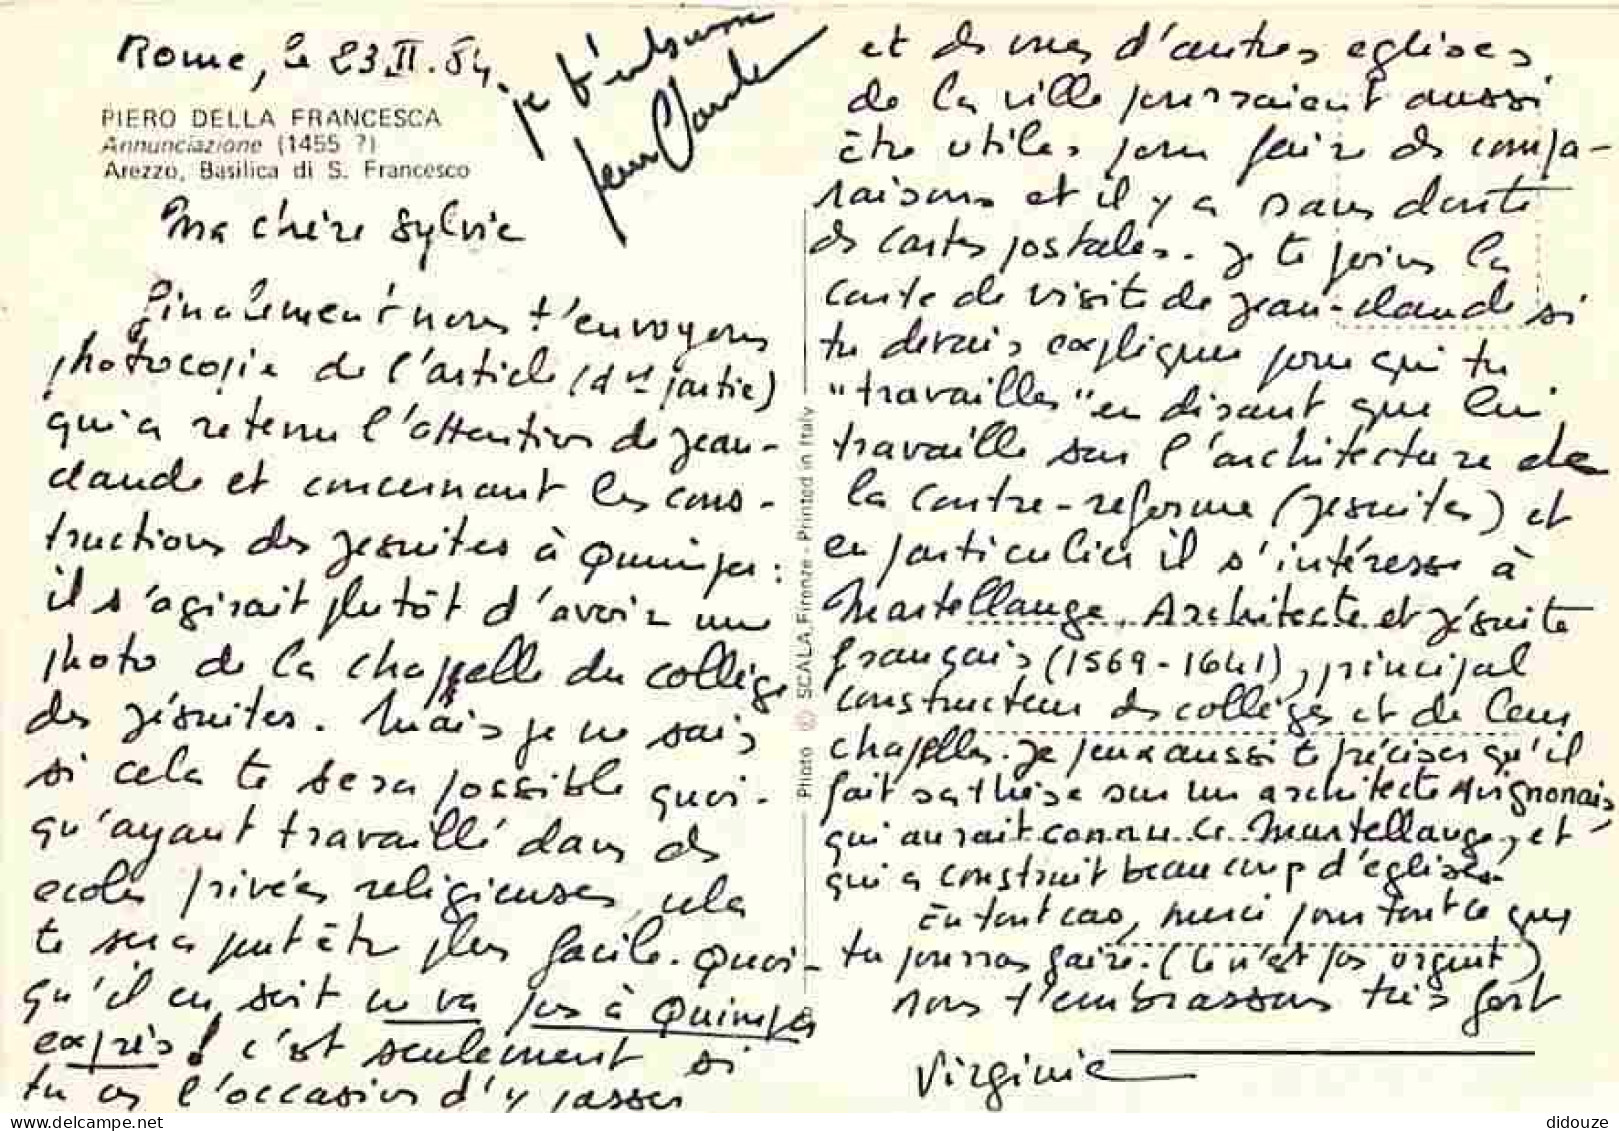 Rome, le 23 II. 84
je t'embrasse
Jean Claude
PIERO DELLA FRANCESCA
Annunciazione (1455 ?)
Arezzo, Basilica di S. Francesco
Ma chère Sylvie
Finalement nous t'envoyons
photocopie de l'article (1re partie)
qui a retenu l'attention de Jean-
claude et concernant les cons-
tructions des Jesuites à Quimper :
il s'agirait plutôt d'avoir une
photo de la chapelle du collège
des jésuites. Mais je ne sais
si cela te sera possible quoi-
qu'ayant travaillé dans des
ecoles privées religieuses, cela
te sera peut être plus facile. Quoi-
qu'il en soit ne va pas à Quimper
exprès ! c'est seulement si
tu as l'occasion d'y passer
et des vues d'autres eglises
de la ville pourraient aussi
être utiles pour faire des compa-
raisons et il y a sans doute
des cartes postales. Je te joins la
carte de visite de Jean-claude si
tu devais expliquer pour qui tu
"travailles" en disant que lui
travaille sur l'architecture de
la contre-reforme (Jesuites) et
en particulier il s'intéresse à
Martellange, Architecte et Jésuite
français (1569-1641), principal
constructeur des collèges et de leur
chapelles. Je peux aussi te préciser qu'il
fait sa thèse sur un architecte Avignonais,
qui aurait connu ce Martellange, et
qui a construit beaucoup d'églises.
En tout cas, merci pour tout ce que
tu pourras faire. (ce n'est pas urgent)
nous t'embrassons très fort
Virginie
Photo © SCALA, Firenze - Printed in Italy
didouze